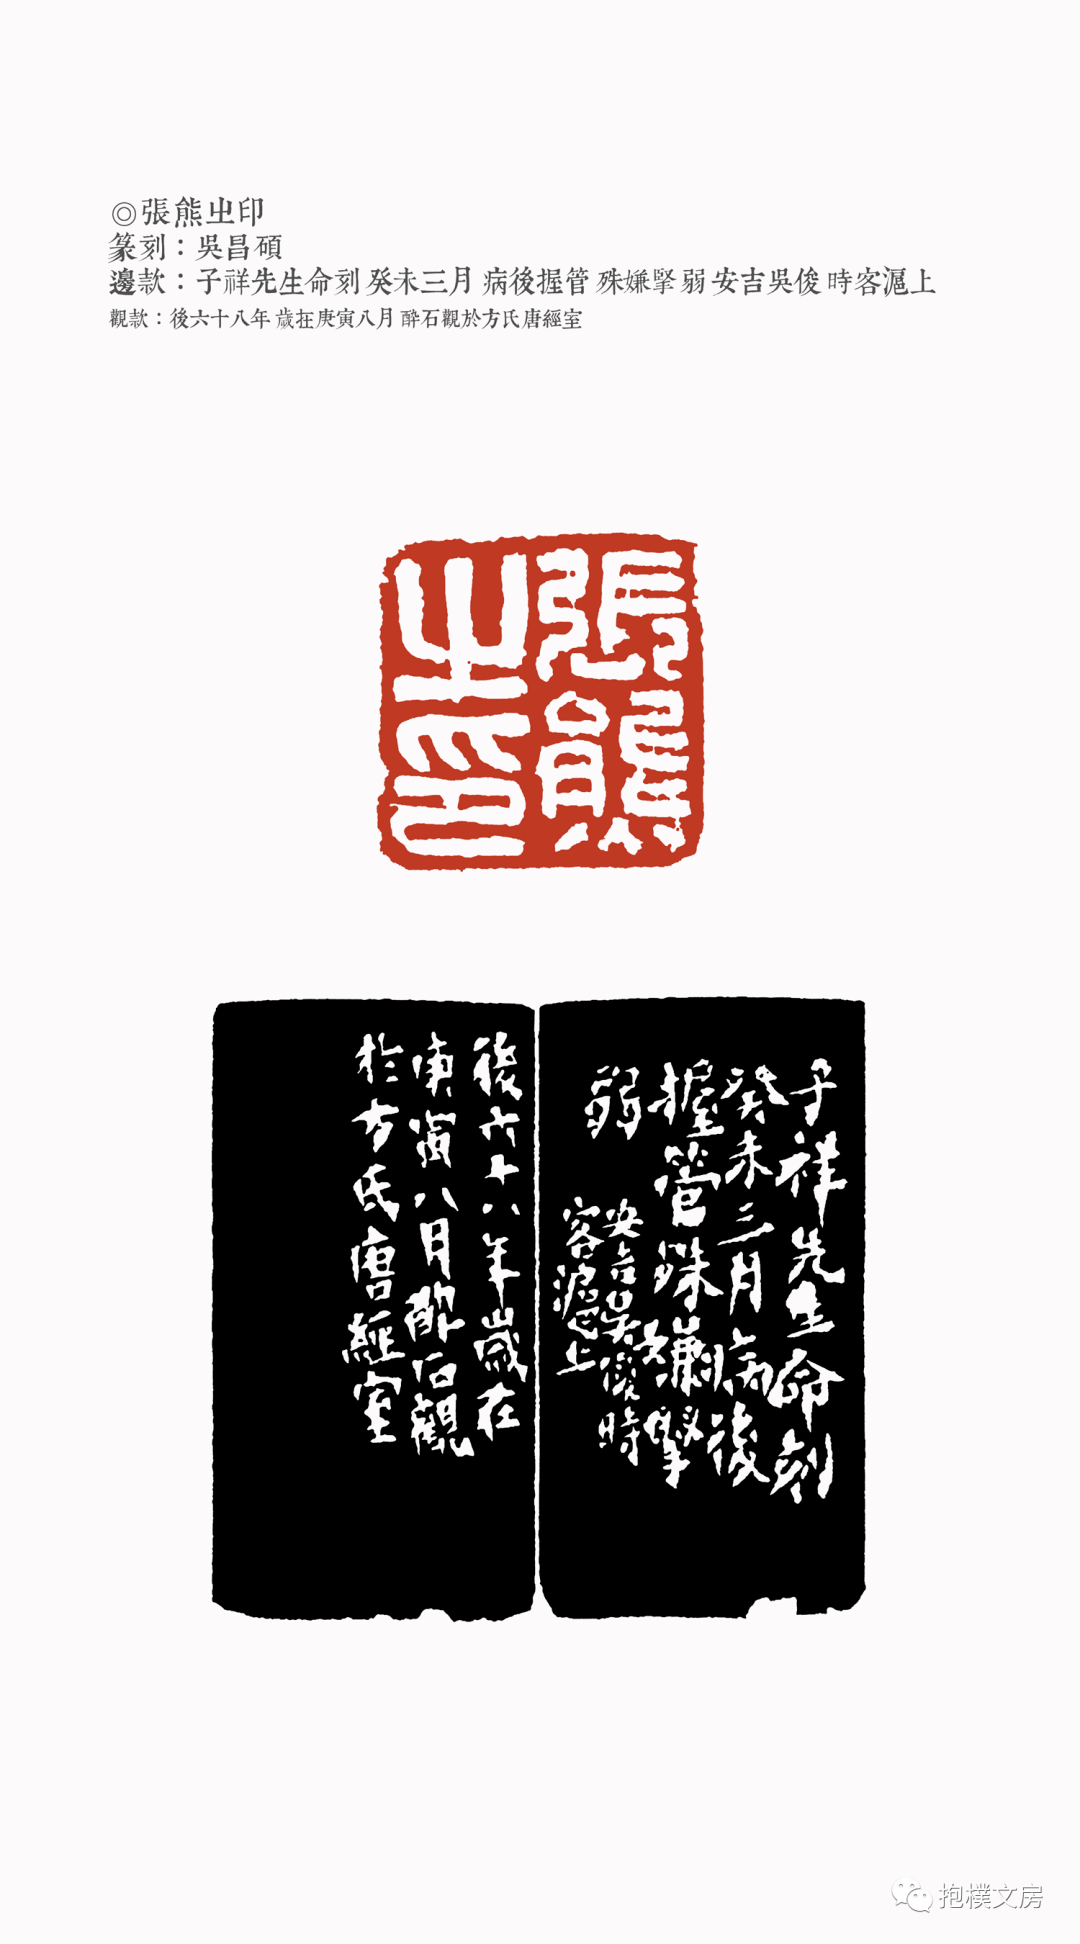 ◎張熊㞢印
篆刻：吳昌碩
邊款：子祥先生命刻 癸未三月 病後握管 殊嫌掔弱 安吉吳俊 時客滬上
觀款：後六十八年 歲在庚寅八月 醉石觀於方氏唐經室
張熊
㞢印
子祥先生命刻
癸未三月病後
握管殊嫌掔
弱
安吉吳俊時
客滬上
後六十八年歲在
庚寅八月醉石觀
於方氏唐經室
抱樸文房